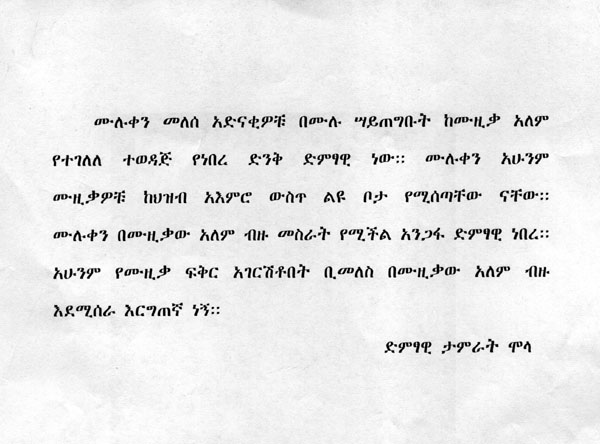 ሙሉቀን መለሰ አድናቂዎቹ በሙሉ ሣይጠግቡት ከሙዚቃ አለም
የተገለለ ተወዳጅ የነበረ ድንቅ ድምፃዊ ነው፡፡ ሙሉቀን አሁንም
ሙዚቃዎቹ ከህዝብ አእምሮ ውስጥ ልዩ ቦታ የሚሰጣቸው ናቸው፡፡
ሙሉቀን በሙዚቃው አለም ብዙ መስራት የሚችል አንጋፋ ድምፃዊ ነበረ፡፡
አሁንም የሙዚቃ ፍቅር አገርሽቶበት ቢመለስ በሙዚቃው አለም ብዙ
እደሚሰራ እርግጠኛ ነኝ፡፡
ድምፃዊ ታምራት ሞላ